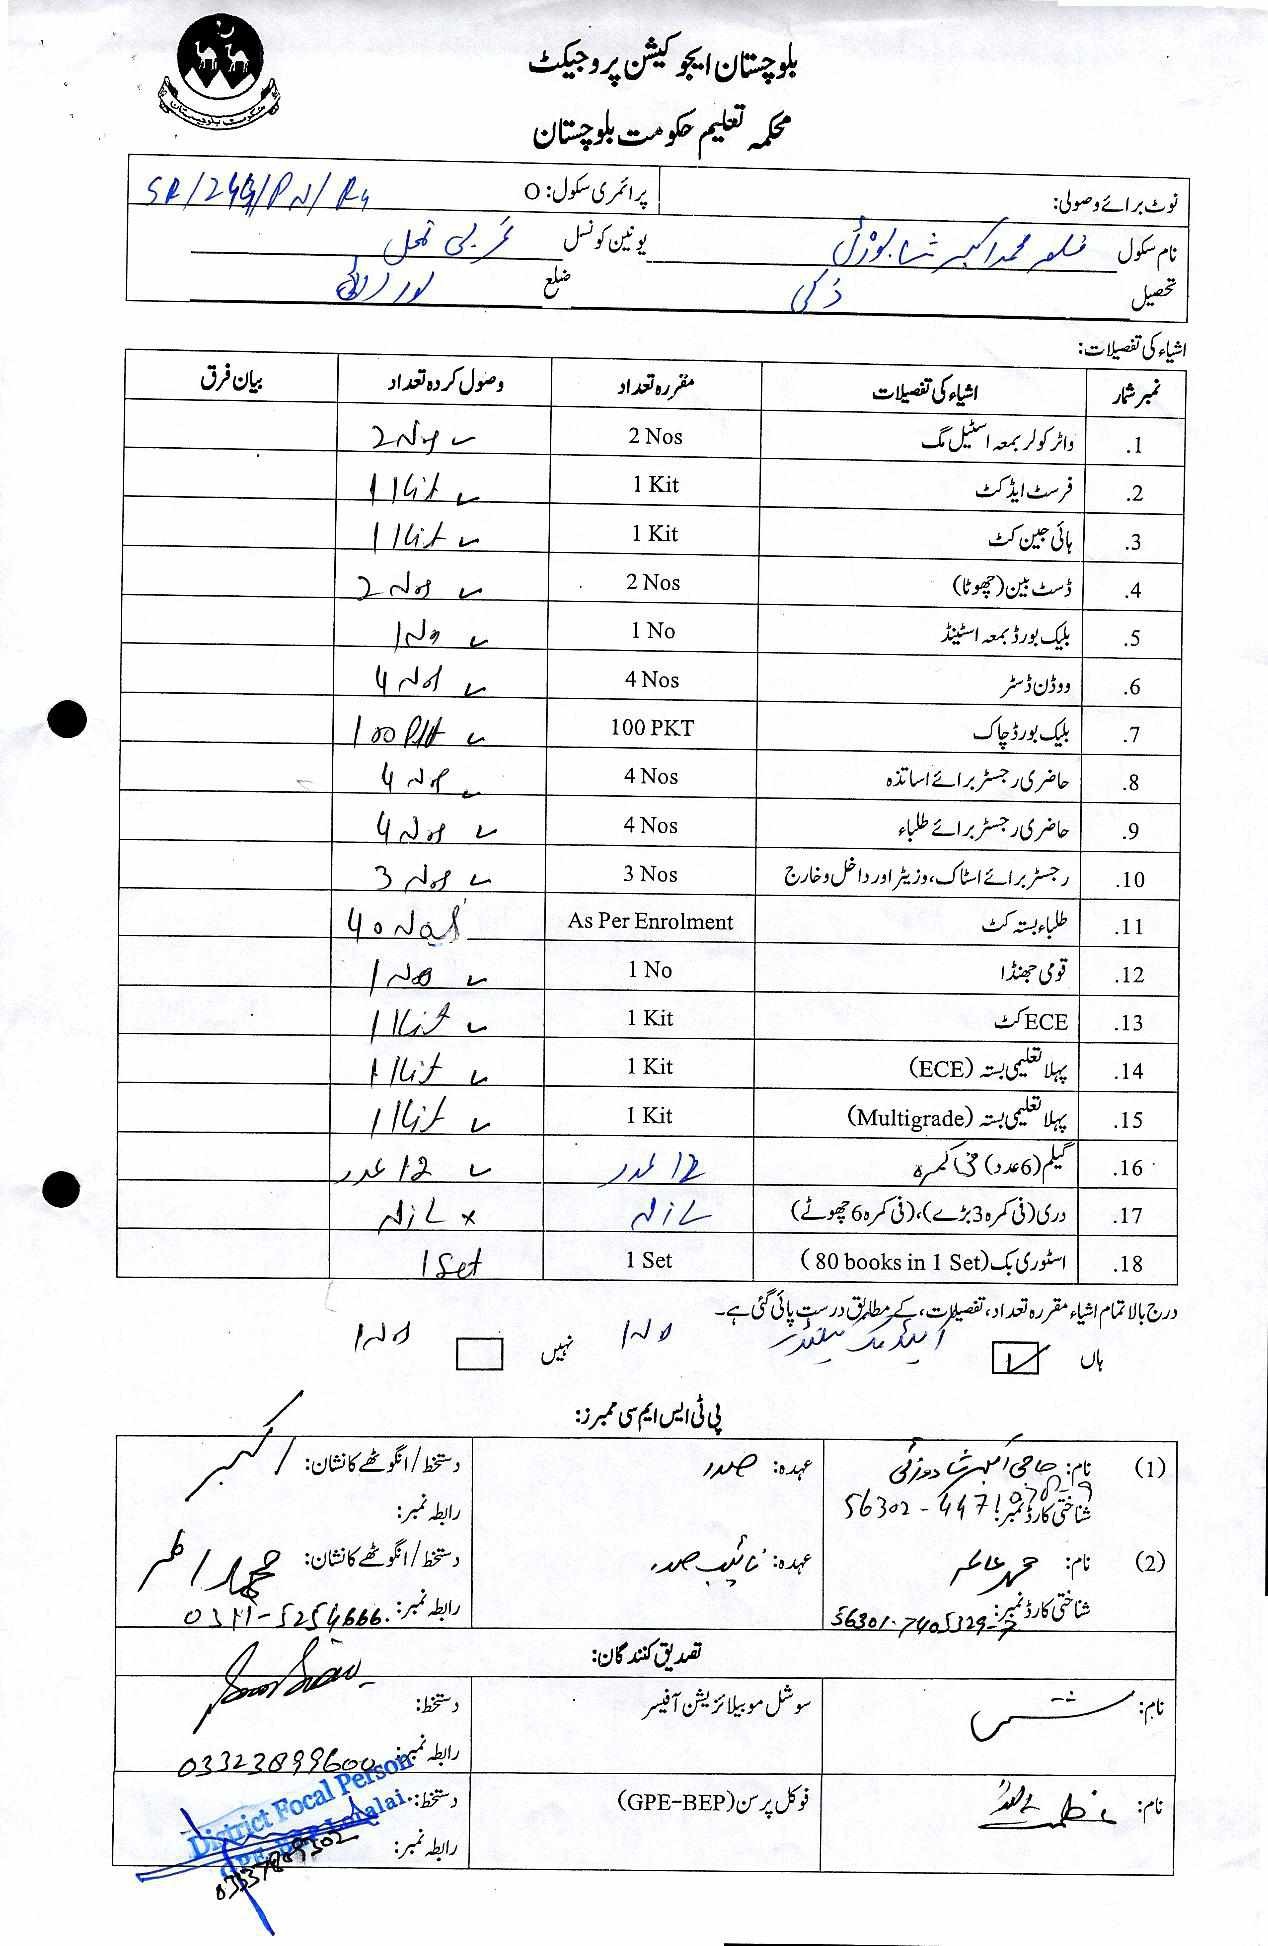 حکومت بلوچستان
بلوچستان ایجوکیشن پروجیکٹ
محکمہ تعلیم حکومت بلوچستان
نوٹ برائے وصولی: پرائمری سکول: O
نام سکول محمد اکبر یونین کونسل غربی تھل
تحصیل دُکی ضلع لورالائی
اشیاء کی تفصیلات:
نمبر شمار اشیاء کی تفصیلات مقررہ تعداد وصول کردہ تعداد بیان فرق
1. واٹر کولر بمعہ اسٹیل مگ 2 Nos 2 Nos ✓
2. فرسٹ ایڈ کٹ 1 Kit 1 Kit ✓
3. ہائی جین کٹ 1 Kit 1 Kit ✓
4. ڈسٹ بین (چھوٹا) 2 Nos 2 Nos ✓
5. بلیک بورڈ بمعہ اسٹینڈ 1 No 1 No ✓
6. ووڈن ڈسٹر 4 Nos 4 Nos ✓
7. بلیک بورڈ چاک 100 PKT 100 Pkt ✓
8. حاضری رجسٹر برائے اساتذہ 4 Nos 4 Nos ✓
9. حاضری رجسٹر برائے طلباء 4 Nos 4 Nos ✓
10. رجسٹر برائے اسٹاک، وزیٹر اور داخل و خارج 3 Nos 3 Nos ✓
11. طلباء بستہ کٹ As Per Enrolment 40 Nos
12. قومی جھنڈا 1 No 1 No ✓
13. ECE کٹ 1 Kit 1 Kit ✓
14. پہلا تعلیمی بستہ (ECE) 1 Kit 1 Kit ✓
15. پہلا تعلیمی بستہ (Multigrade) 1 Kit 1 Kit ✓
16. گیلم (6 عدد) فی کمرہ 12 عدد 12 عدد ✓
17. دری (فی کمرہ 3 بڑے)، (فی کمرہ 6 چھوٹے) Nil Nil ×
18. اسٹوری بک (80 books in 1 Set) 1 Set 1 Set
درج بالا تمام اشیاء مقررہ تعداد، تفصیلات، کے مطابق درست پائی گئی ہے۔
ہاں ✓ نہیں
پی ٹی ایس ایم سی ممبرز:
(1) نام: حاجی اکبر عہدہ: صدر دستخط / انگوٹھے کا نشان: اکبر
شناختی کارڈ نمبر: رابطہ نمبر:
(2) نام: محمد عہدہ: نائب صدر دستخط / انگوٹھے کا نشان: محمد
شناختی کارڈ نمبر: 56301-7405329-7 رابطہ نمبر:
تصدیق کنندگان:
نام: سوشل موبیلائزیشن آفیسر دستخط:
رابطہ نمبر: 03323899600
نام: فوکل پرسن (GPE-BEP) دستخط:
رابطہ نمبر: 03337889302
District Focal Person
GPE-BEP Loralai.